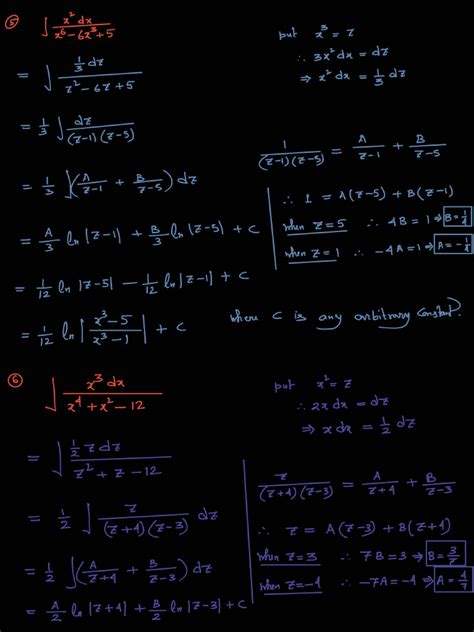 ⑤ ∫ x² dx / (x⁶ − 6x³ + 5)
put x³ = z
∴ 3x² dx = dz
⇒ x² dx = 1/3 dz
= ∫ 1/3 dz / (z² − 6z + 5)
= 1/3 ∫ dz / ((z−1)(z−5))
1 / ((z−1)(z−5)) = A/(z−1) + B/(z−5)
= 1/3 ∫ (A/(z−1) + B/(z−5)) dz
∴ 1 = A(z−5) + B(z−1)
when z = 5 ∴ 4B = 1 ⇒ B = 1/4
when z = 1 ∴ −4A = 1 ⇒ A = −1/4
= A/3 ln |z−1| + B/3 ln |z−5| + C
= 1/12 ln |z−5| − 1/12 ln |z−1| + C
= 1/12 ln | (x³−5) / (x³−1) | + C where C is any arbitrary constant.
⑥ ∫ x³ dx / (x⁴ + x² − 12)
put x² = z
∴ 2x dx = dz
⇒ x dx = 1/2 dz
= ∫ 1/2 z dz / (z² + z − 12)
= 1/2 ∫ z / ((z+4)(z−3)) dz
z / ((z+4)(z−3)) = A/(z+4) + B/(z−3)
= 1/2 ∫ (A/(z+4) + B/(z−3)) dz
∴ z = A(z−3) + B(z+4)
when z = 3 ∴ 7B = 3 ⇒ B = 3/7
when z = −4 ∴ −7A = −4 ⇒ A = 4/7
= A/2 ln |z+4| + B/2 ln |z−3| + C